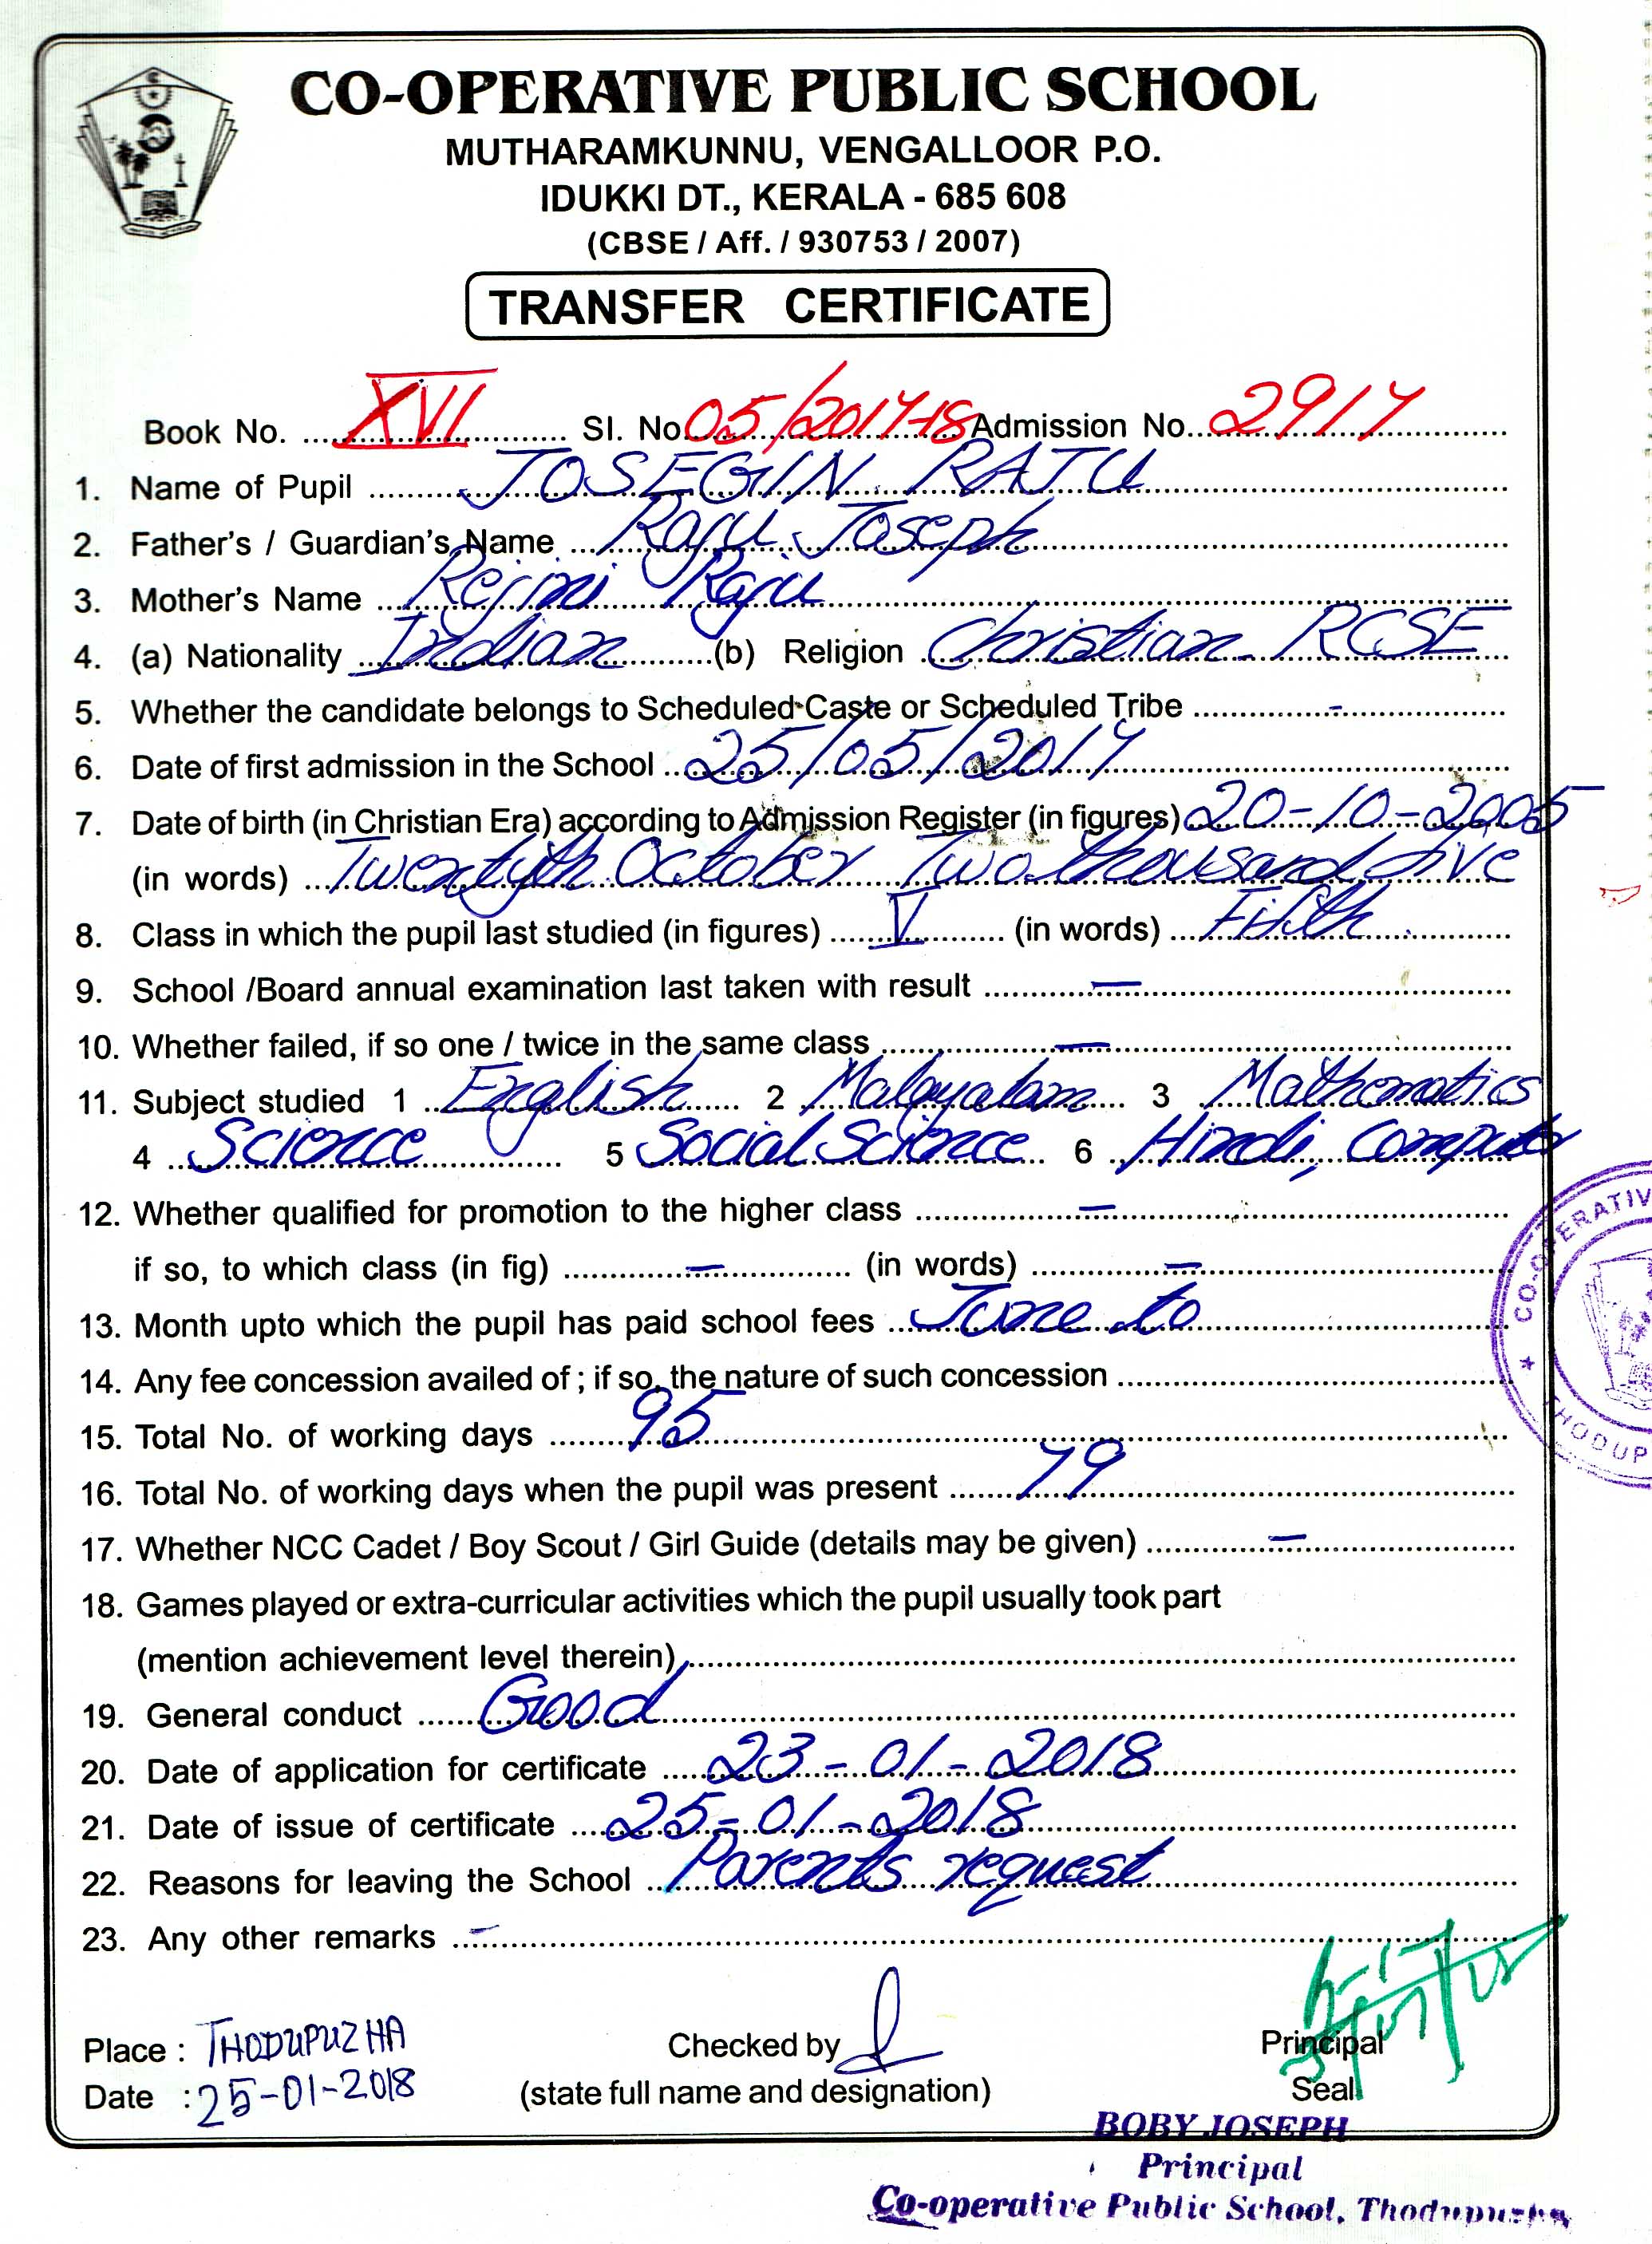 CO-OPERATIVE PUBLIC SCHOOL
MUTHARAMKUNNU, VENGALLOOR P.O.
IDUKKI DT., KERALA - 685 608
(CBSE / Aff. / 930753 / 2007)
TRANSFER CERTIFICATE
Book No. XVI Sl. No. 05/2017-18 Admission No. 2917
1. Name of Pupil JOSEGIN RAJU
2. Father's / Guardian's Name Raju Joseph
3. Mother's Name Rejini Raju
4. (a) Nationality Indian (b) Religion Christian RCSE
5. Whether the candidate belongs to Scheduled Caste or Scheduled Tribe -
6. Date of first admission in the School 25/05/2017
7. Date of birth (in Christian Era) according to Admission Register (in figures) 20-10-2005
(in words) Twentyth October Two thousand five
8. Class in which the pupil last studied (in figures) V (in words) Fifth
9. School /Board annual examination last taken with result —
10. Whether failed, if so one / twice in the same class —
11. Subject studied 1 English 2 Malayalam 3 Mathematics
4 Science 5 Social Science 6 Hindi, Computer
12. Whether qualified for promotion to the higher class —
if so, to which class (in fig) — (in words) —
13. Month upto which the pupil has paid school fees June to
14. Any fee concession availed of ; if so, the nature of such concession
15. Total No. of working days 95
16. Total No. of working days when the pupil was present 79
17. Whether NCC Cadet / Boy Scout / Girl Guide (details may be given) —
18. Games played or extra-curricular activities which the pupil usually took part
(mention achievement level therein)
19. General conduct Good
20. Date of application for certificate 23-01-2018
21. Date of issue of certificate 25-01-2018
22. Reasons for leaving the School Parents request
23. Any other remarks -
Place : THODUPUZHA Checked by Principal
Date : 25-01-2018 (state full name and designation) Seal
BOBY JOSEPH
Principal
Co-operative Public School, Thodupuzha
CO-OPERATIV
THODUP